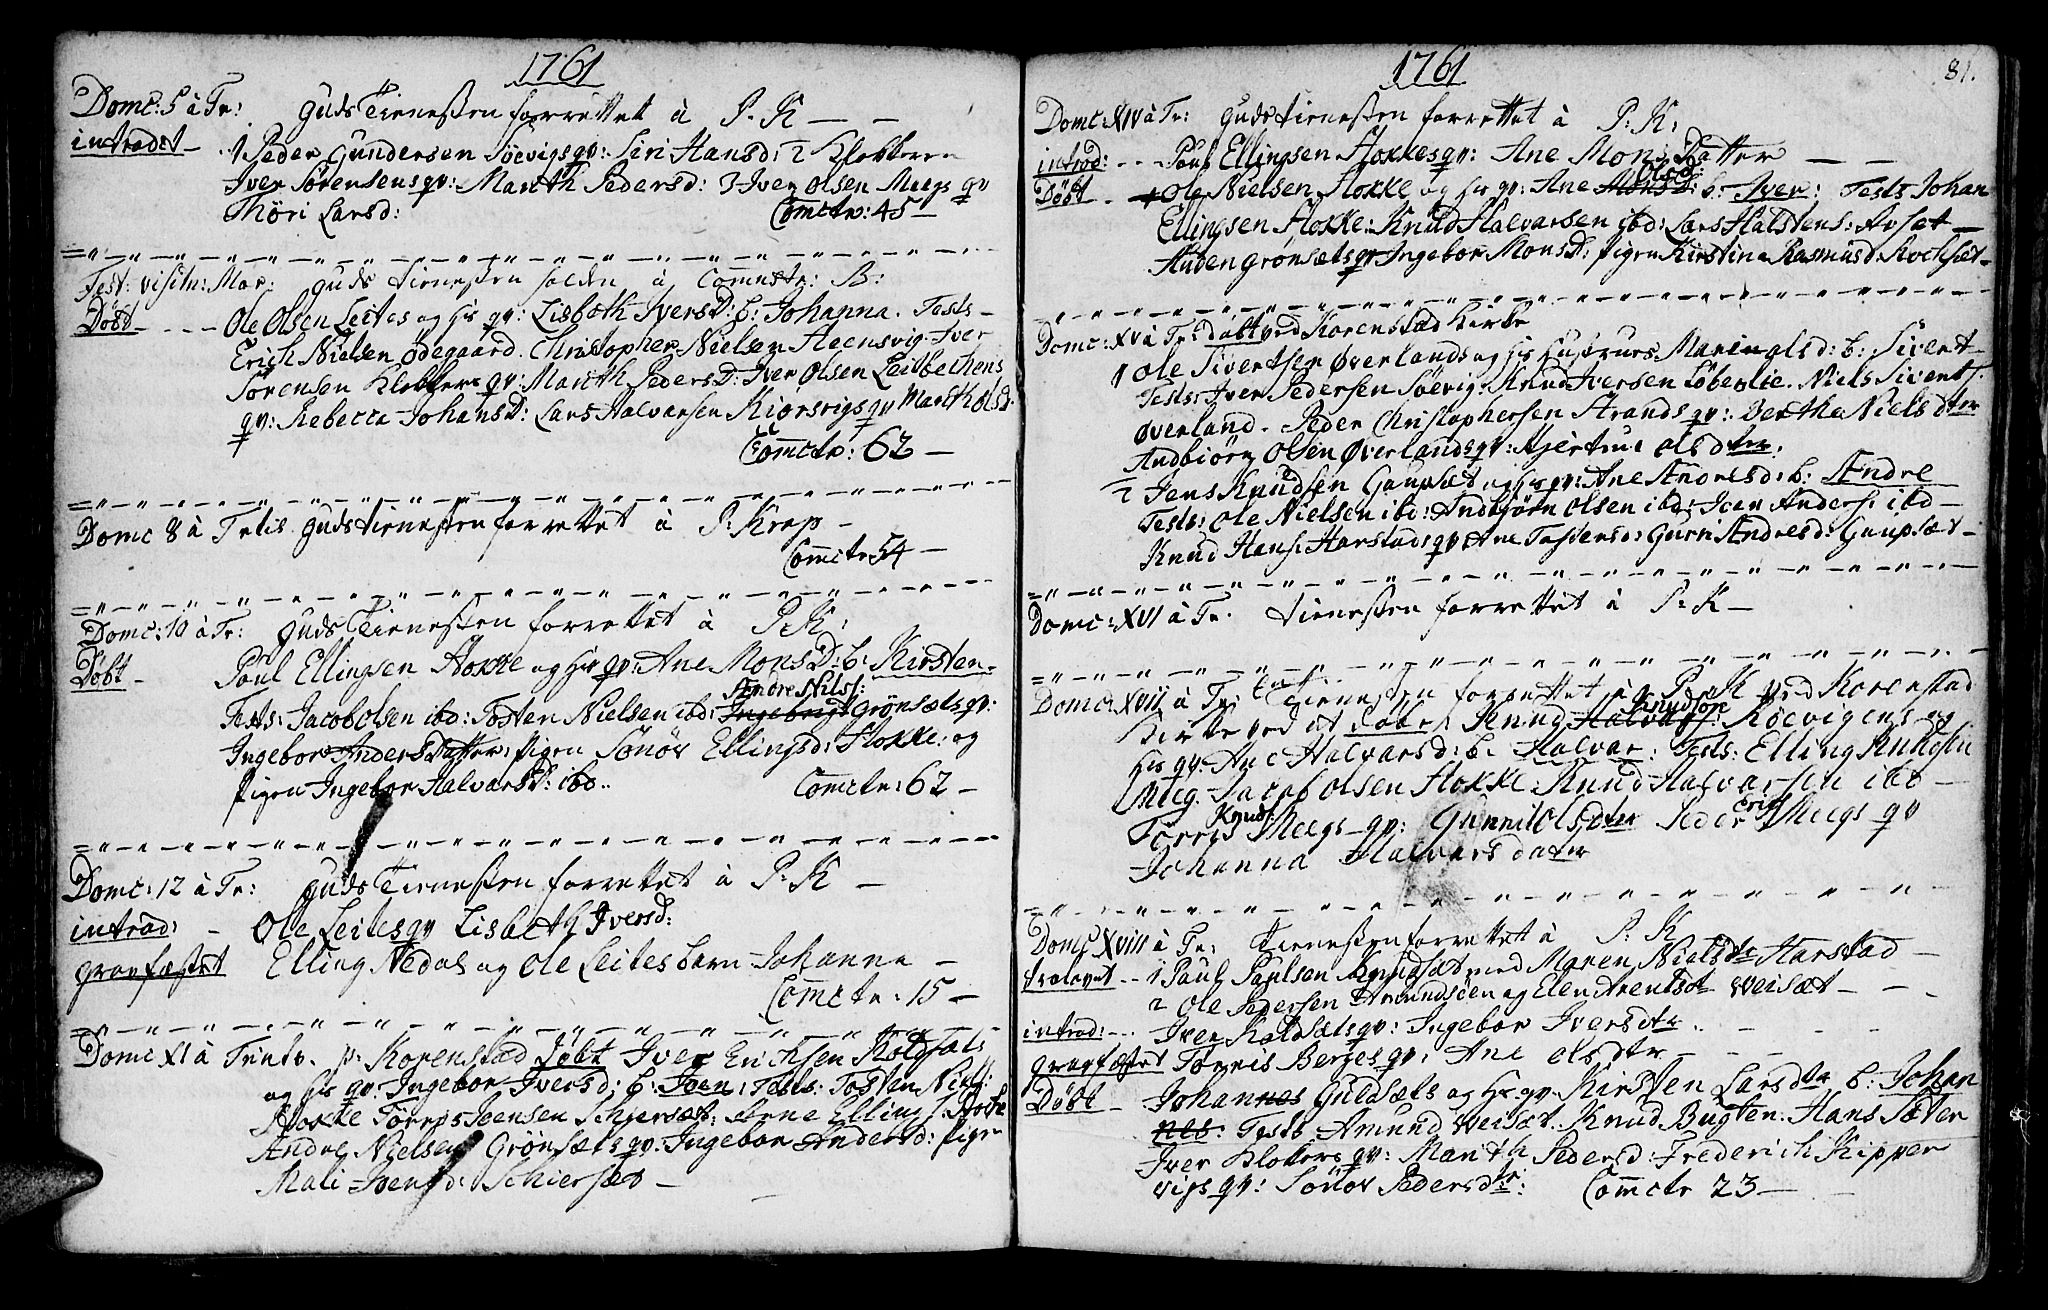 1761
Domc: 5 à Tr: Guds Tienesten forrettet à P. K — —
introdct — 1 Peder Gundersen Söevigs qv: Siri Hansd: 2 Klokkeren
Iver Sørensens qv: Marith Pedersd: 3 Iver Olsen Meegs qv
Thöri Larsd: Comctr: 45 —
Fest: visitn: Mar: Guds Tienesten holden à Comnstr: B:
Döbt — — — Ole Olsen Leites og Hs qv: Lisbeth IversD: b: Johanna. Tests —
Erich Nielsen Ødegaard. Christopher Nielsen Steensvig. Iver
Sörensen Klokkers qv: Marith PedersD: Iver Olsen Leitbechens
qv: Rebecca JohansD: Lars Halvarsen Kiörsvigs qv Marith Olsd.
Comctr: 62 —
Domc 8 à Trtis Guds Tienesten forrettet à P: Krop —
Comctr 54 —
Domc: 10 à Tr: Guds Tienesten forrettet à P. K:
Döbt — Poul Ellingsen Stokke og Hs qv: Ane MonsD: b: Kirsten —
Andre Nilss:
Tests: Jacob Olsen ibd: Tosten Nielsen ibd: Ingebrigt Grönsets qv:
Ingebor Anders Datter: pigen Sönöv Ellingsd: Stokke: og
pigen Ingebor HalvarsD: ibd.. Comctr: 62 —
Domc: 12 à Tr: Guds Tienesten forrettet à P: K —
introd: — Ole Leites qv Lisbeth Iversd:
gravfæstet Elling Nedal og Ole Leites barn Johanna —
Comctr: 15 —
Domc XI à Trnts. p: Korenstad Döbt Iver Erichsen Koldsæts
og Hs qv: Ingebor Iversd: b: Joen: Tests: Tosten Niels:
Stokke Törris Joensen Schiersæt: Arne Ellings: Stokke
Andre Nielsen Grönsæts qv: Ingebor Andersd: pigen
Mali Iversd: Schiersæt —
1761
81.
Domc: XIV à Tr: Guds Tienesten forrettet à P: K:
introd: — — Poul Ellingsen Stokkes qv: Ane Mons Datter — —
Olsd:
Döbt — 1 Ole Nielsen Stokke og Hs qv: Ane MonsD: b: Iver: Tests Johan
Ellingsen Stokke: Knud Halvarsen ibd: Lars Halstens: Arset —
Auden Grönsets qv Ingebor MonsD: pigen Kirstina Rasmusd: Rochset —
Domc: XV à Tr: Döbt ved Korenstad Kirke
1 Ole Sivertsen Øverlands og Hs Hustrues Maren Olsd: b: Sivert
Tests: Iver Pedersen Söevig: Knud Iversen Löbenlie. Niels Siverts:
Øverland. Peder Christophersen Strands qv: Berthe Niels dter
Andbiörn Olsen Øverlands qv: Gjertrue Ols dter:
2 Jens Knudsen Gaupset og Hs qv: Ane Andresd: b: Andre
Tests: Ole Nielsen ibd: Andbjörn Olsen ibd: Iver Anders: ibd —
Knud Hans: Harstads qv: Ane Tostensd: Guri Andresd: Gaupset —
Domc: XVI à Tr. Tienesten forrettet à P: K —
Domc: XVII à Tr: Tienesten forrettet à P. K ved Korenstad
Knudsön
Kirke ved at döbe: Knud Halvars: Röevigens og
Hs qv: Ane Halvarsd: b: Halvar: Tests: Elling Knudsen
Meeg. Jacob Olsen Stokke: Knud Halvarsen ibd —
Knuds: Erichs
Törris Meegs qv: Gunnil Olsdter Peder Meegs qv
Johanna Halvars dater
Domc XVIII à Tr: Tienesten forrettet à P. K
trolovet — 1 Poul Poulsen Knudsæt med Maren Nielsdr Harstad —
2 Ole Pedersen Amundsöen og Elen Arentsdt Weisæt — — —
introd: — Iver Koldsæts qv: Ingebor Iversdtr — — —
gravfæstet Törris Berges qv: Ane Olsdtr — — —
Döbt — Johannes Guldsæts og Hs qv: Kirsten Larsdtr b: Johan
nes: Tests Amund Weisæt. Knud Bugten. Hans Sæter
Iver Klokers qv: Marith Pedersd: Frederich Kipper
vigs qv: Sönöv Pedersdtr: Comctr 23 —